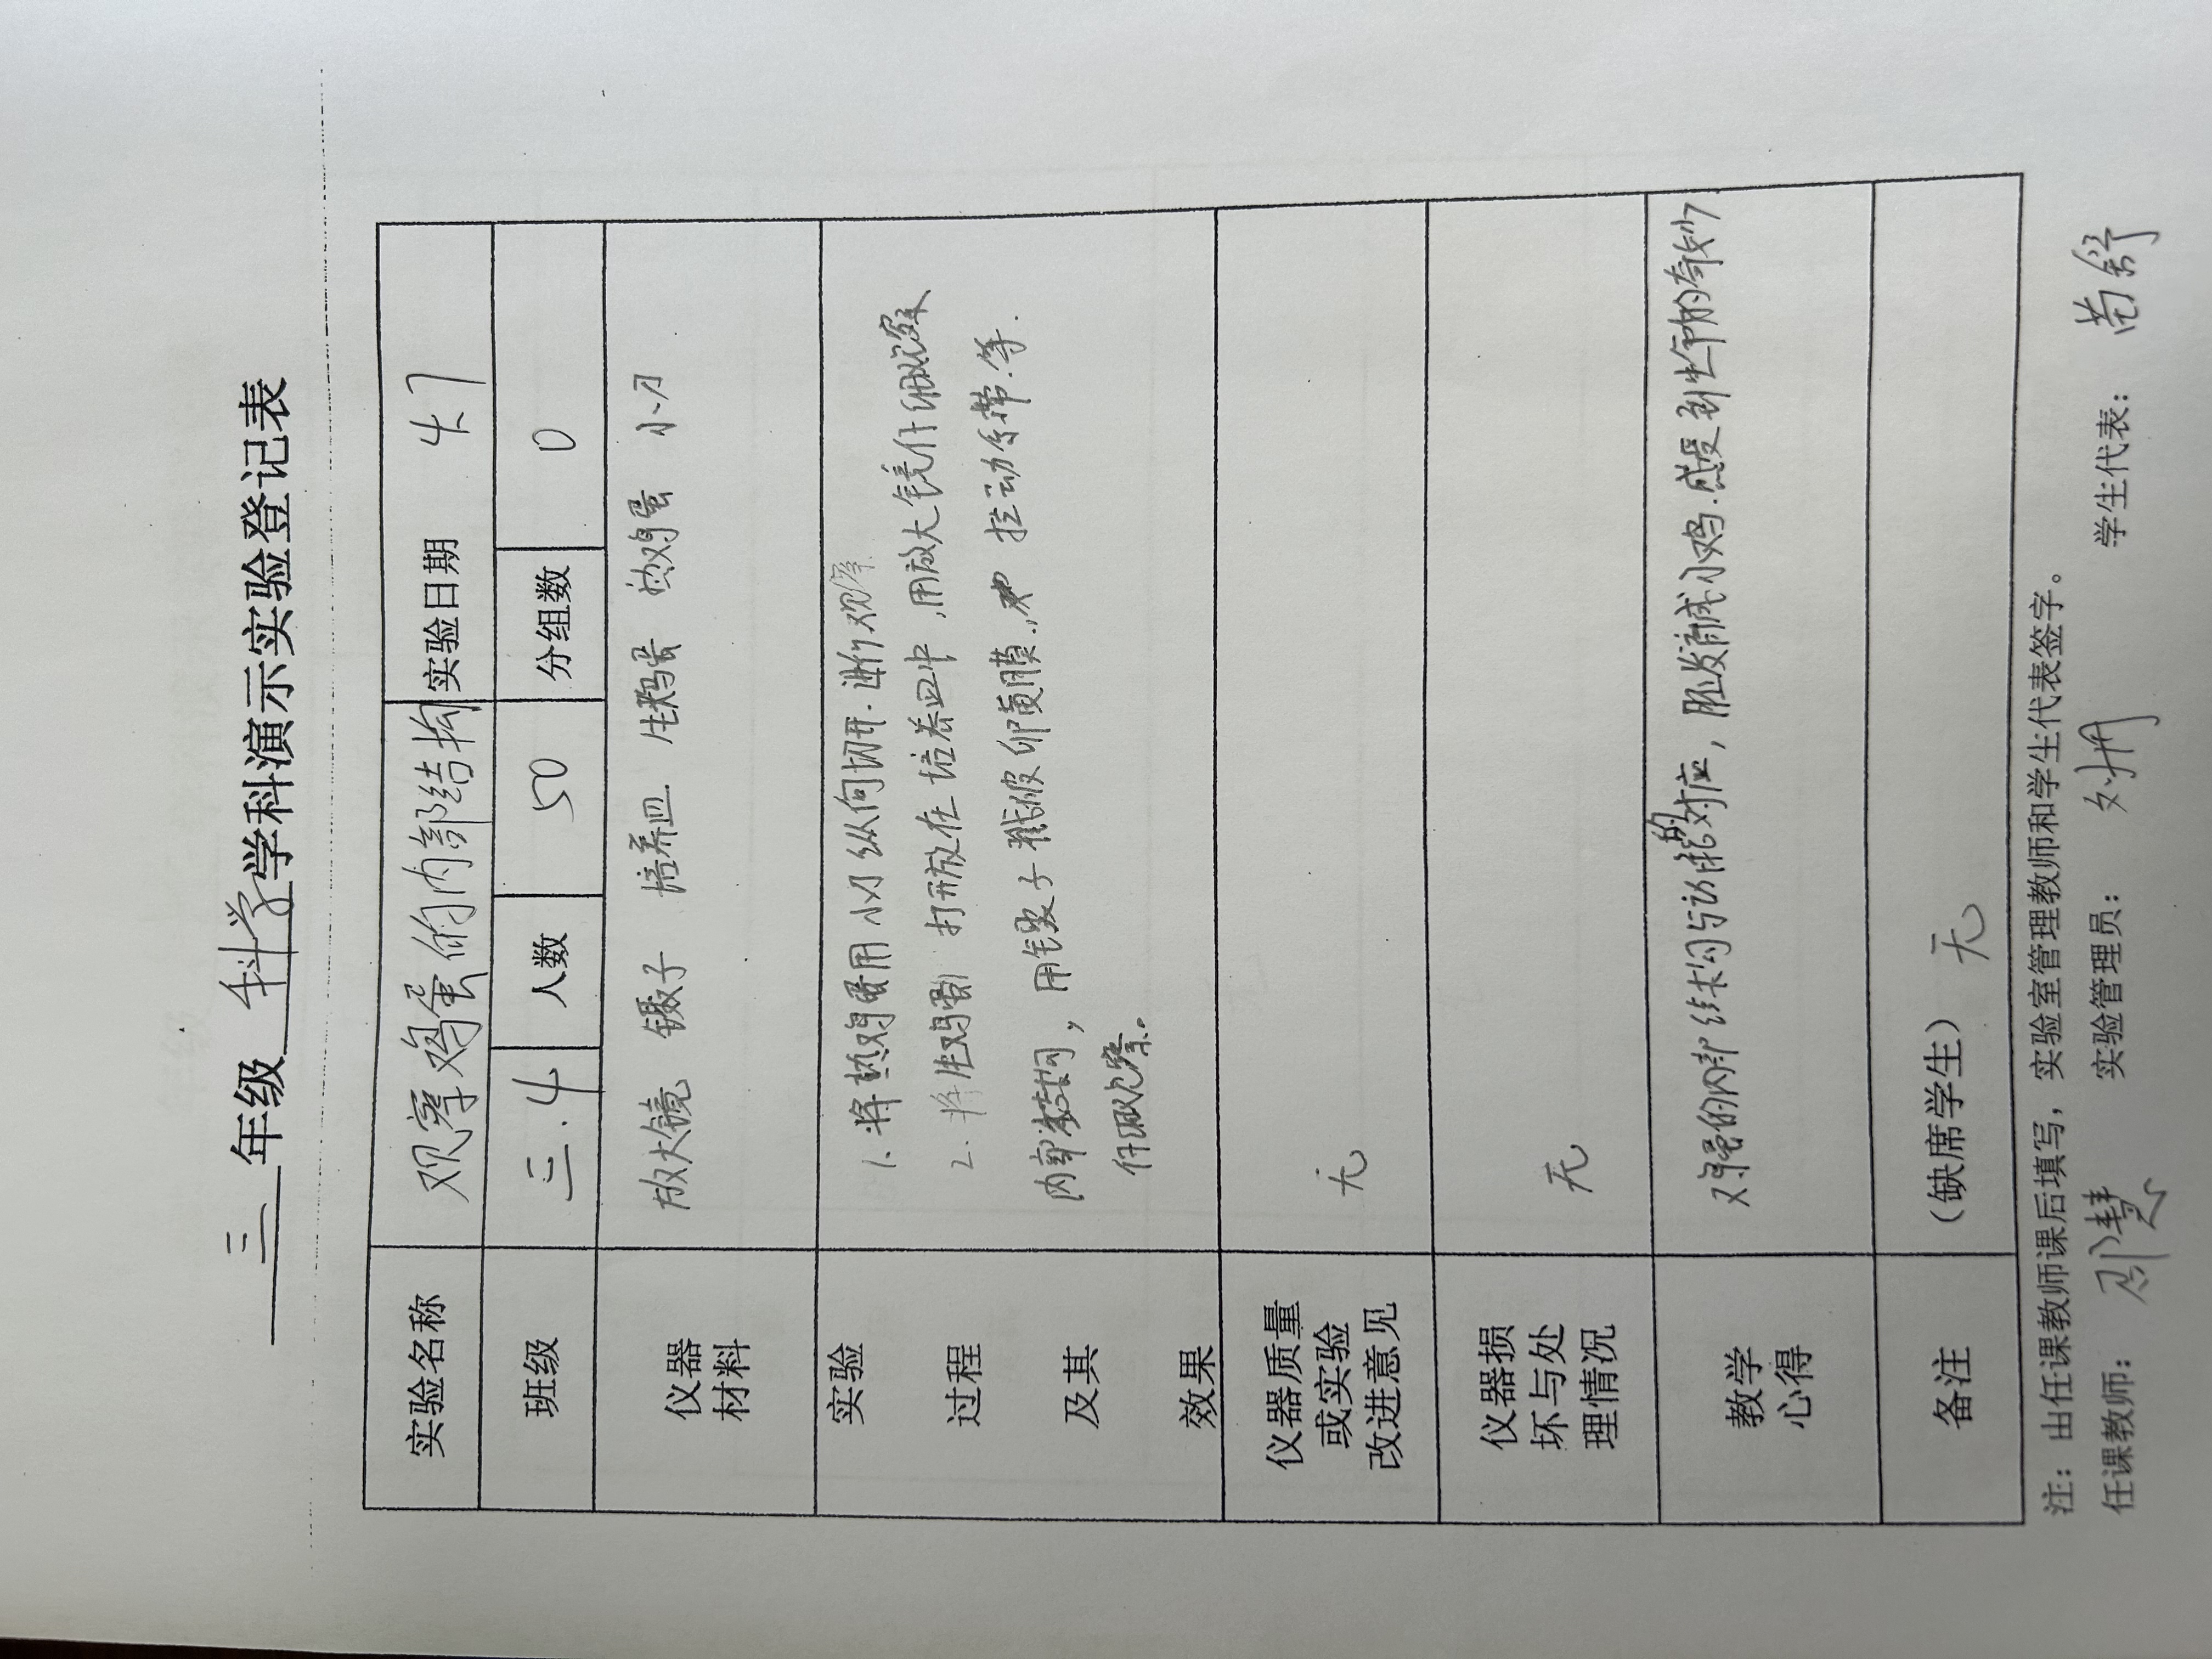 三 年级 科学 学科演示实验登记表
实验名称 观察鸡蛋的内部结构 实验日期 4.7
班级 三.4 人数 50 分组数 0
仪器材料 放大镜 镊子 培养皿 生鸡蛋 熟鸡蛋 小刀
实验过程及其效果
1. 将熟鸡蛋用小刀纵向切开.进行观察
2. 将生鸡蛋打开放在培养皿中,用放大镜仔细观察
内部结构,用镊子戳破卵黄膜, 拉动系带.等.
仔细观察。
仪器质量或实验改进意见 无
仪器损坏与处理情况 无
教学心得 鸡蛋的内部结构与功能的对应,胚发育成小鸡.感受到生命的奇妙
备注 (缺席学生) 无
注：由任课教师课后填写，实验室管理教师和学生代表签字。
任课教师： 慧 实验管理员： 刘 学生代表： 苗舒